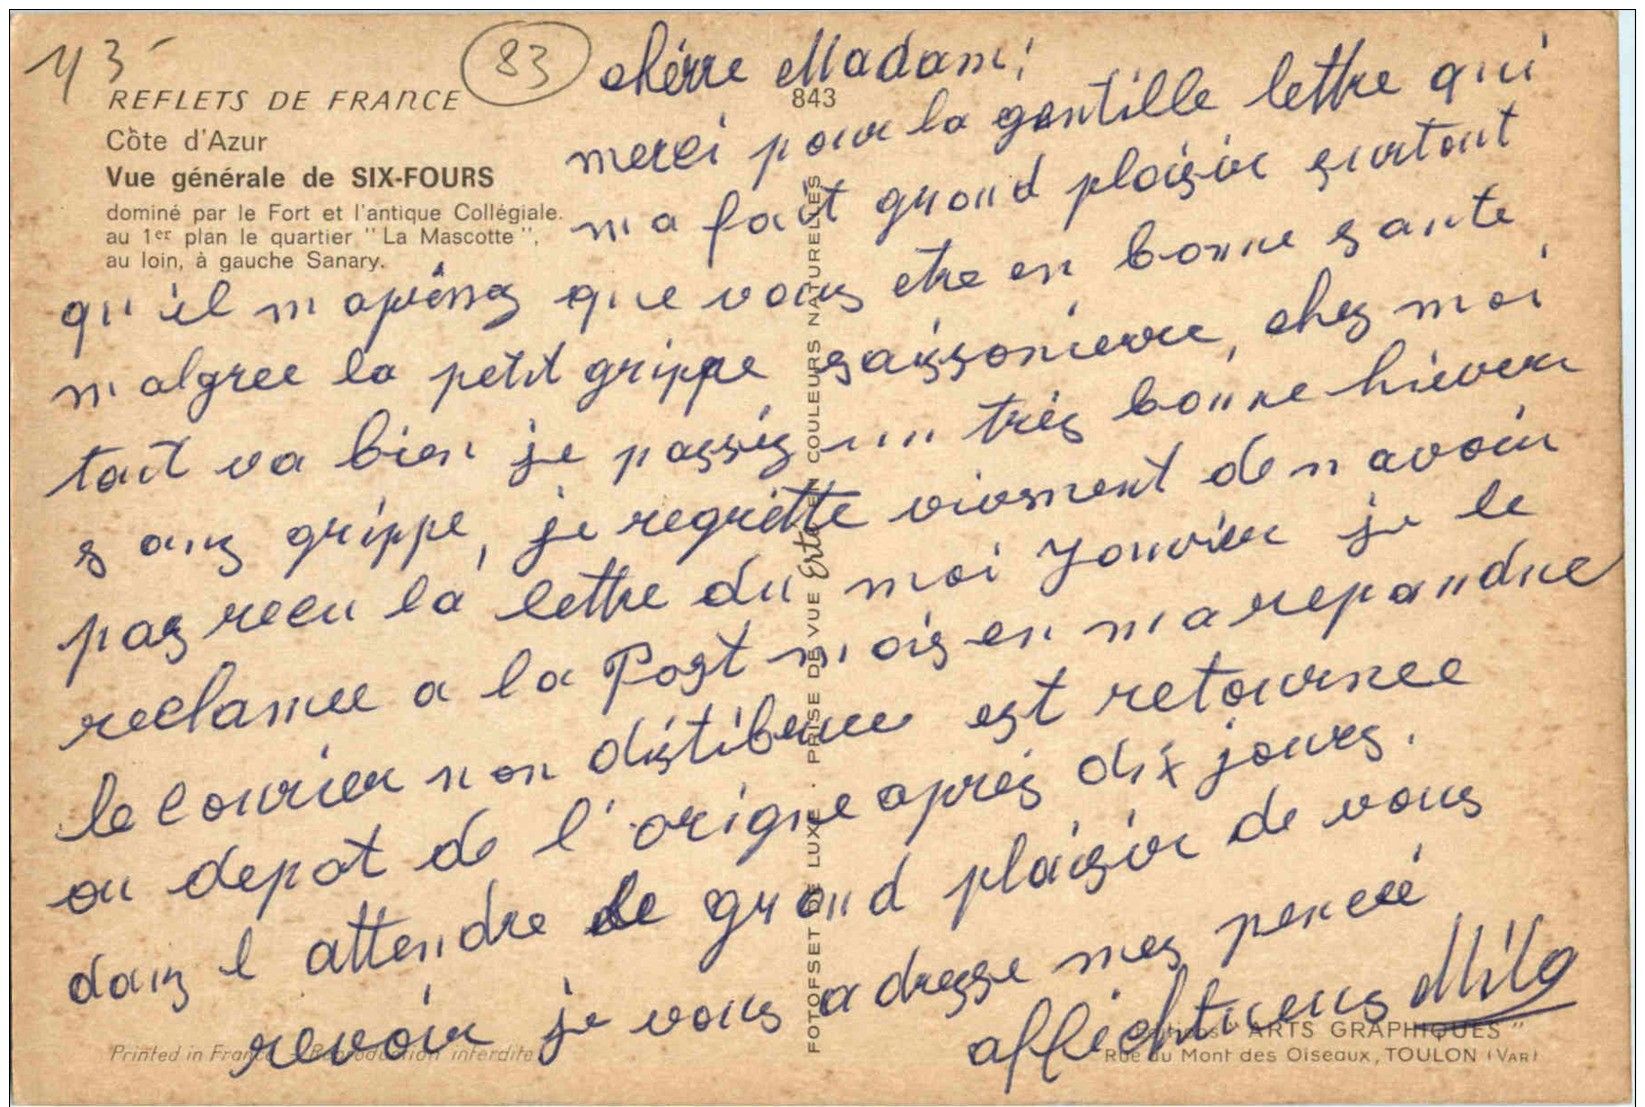 43
83
REFLETS DE FRANCE
Côte d'Azur
Vue générale de SIX-FOURS
dominé par le Fort et l'antique Collégiale.
au 1er plan le quartier "La Mascotte",
au loin, à gauche Sanary.
843
chérre Madam!
merci pour la gentille lettre qui
m a fait grand plaisir surtout
qu'il m apring que vous etre en bonne sante
malgree la petit grippe saissonierre, chez moi
tout va bien je passig un très bonne hiever
sans grippe, je regritte vivement de n avoir
pas recu la lettre du moi Janvier je le
reclamee a la Post mais en ma repandre
le courier non distibuee est retournee
au depot de l'origne après dix jours.
dans l attendre le grand plaisir de vous
revoir je vous adresse mes pencéé
afféchtueus Milo
FOTOFSET DE LUXE . PRISE DE VUE EN COULEURS NATURELLES
Printed in France - Reproduction interdite
Editions "ARTS GRAPHIQUES"
Rue du Mont des Oiseaux, TOULON (VAR)